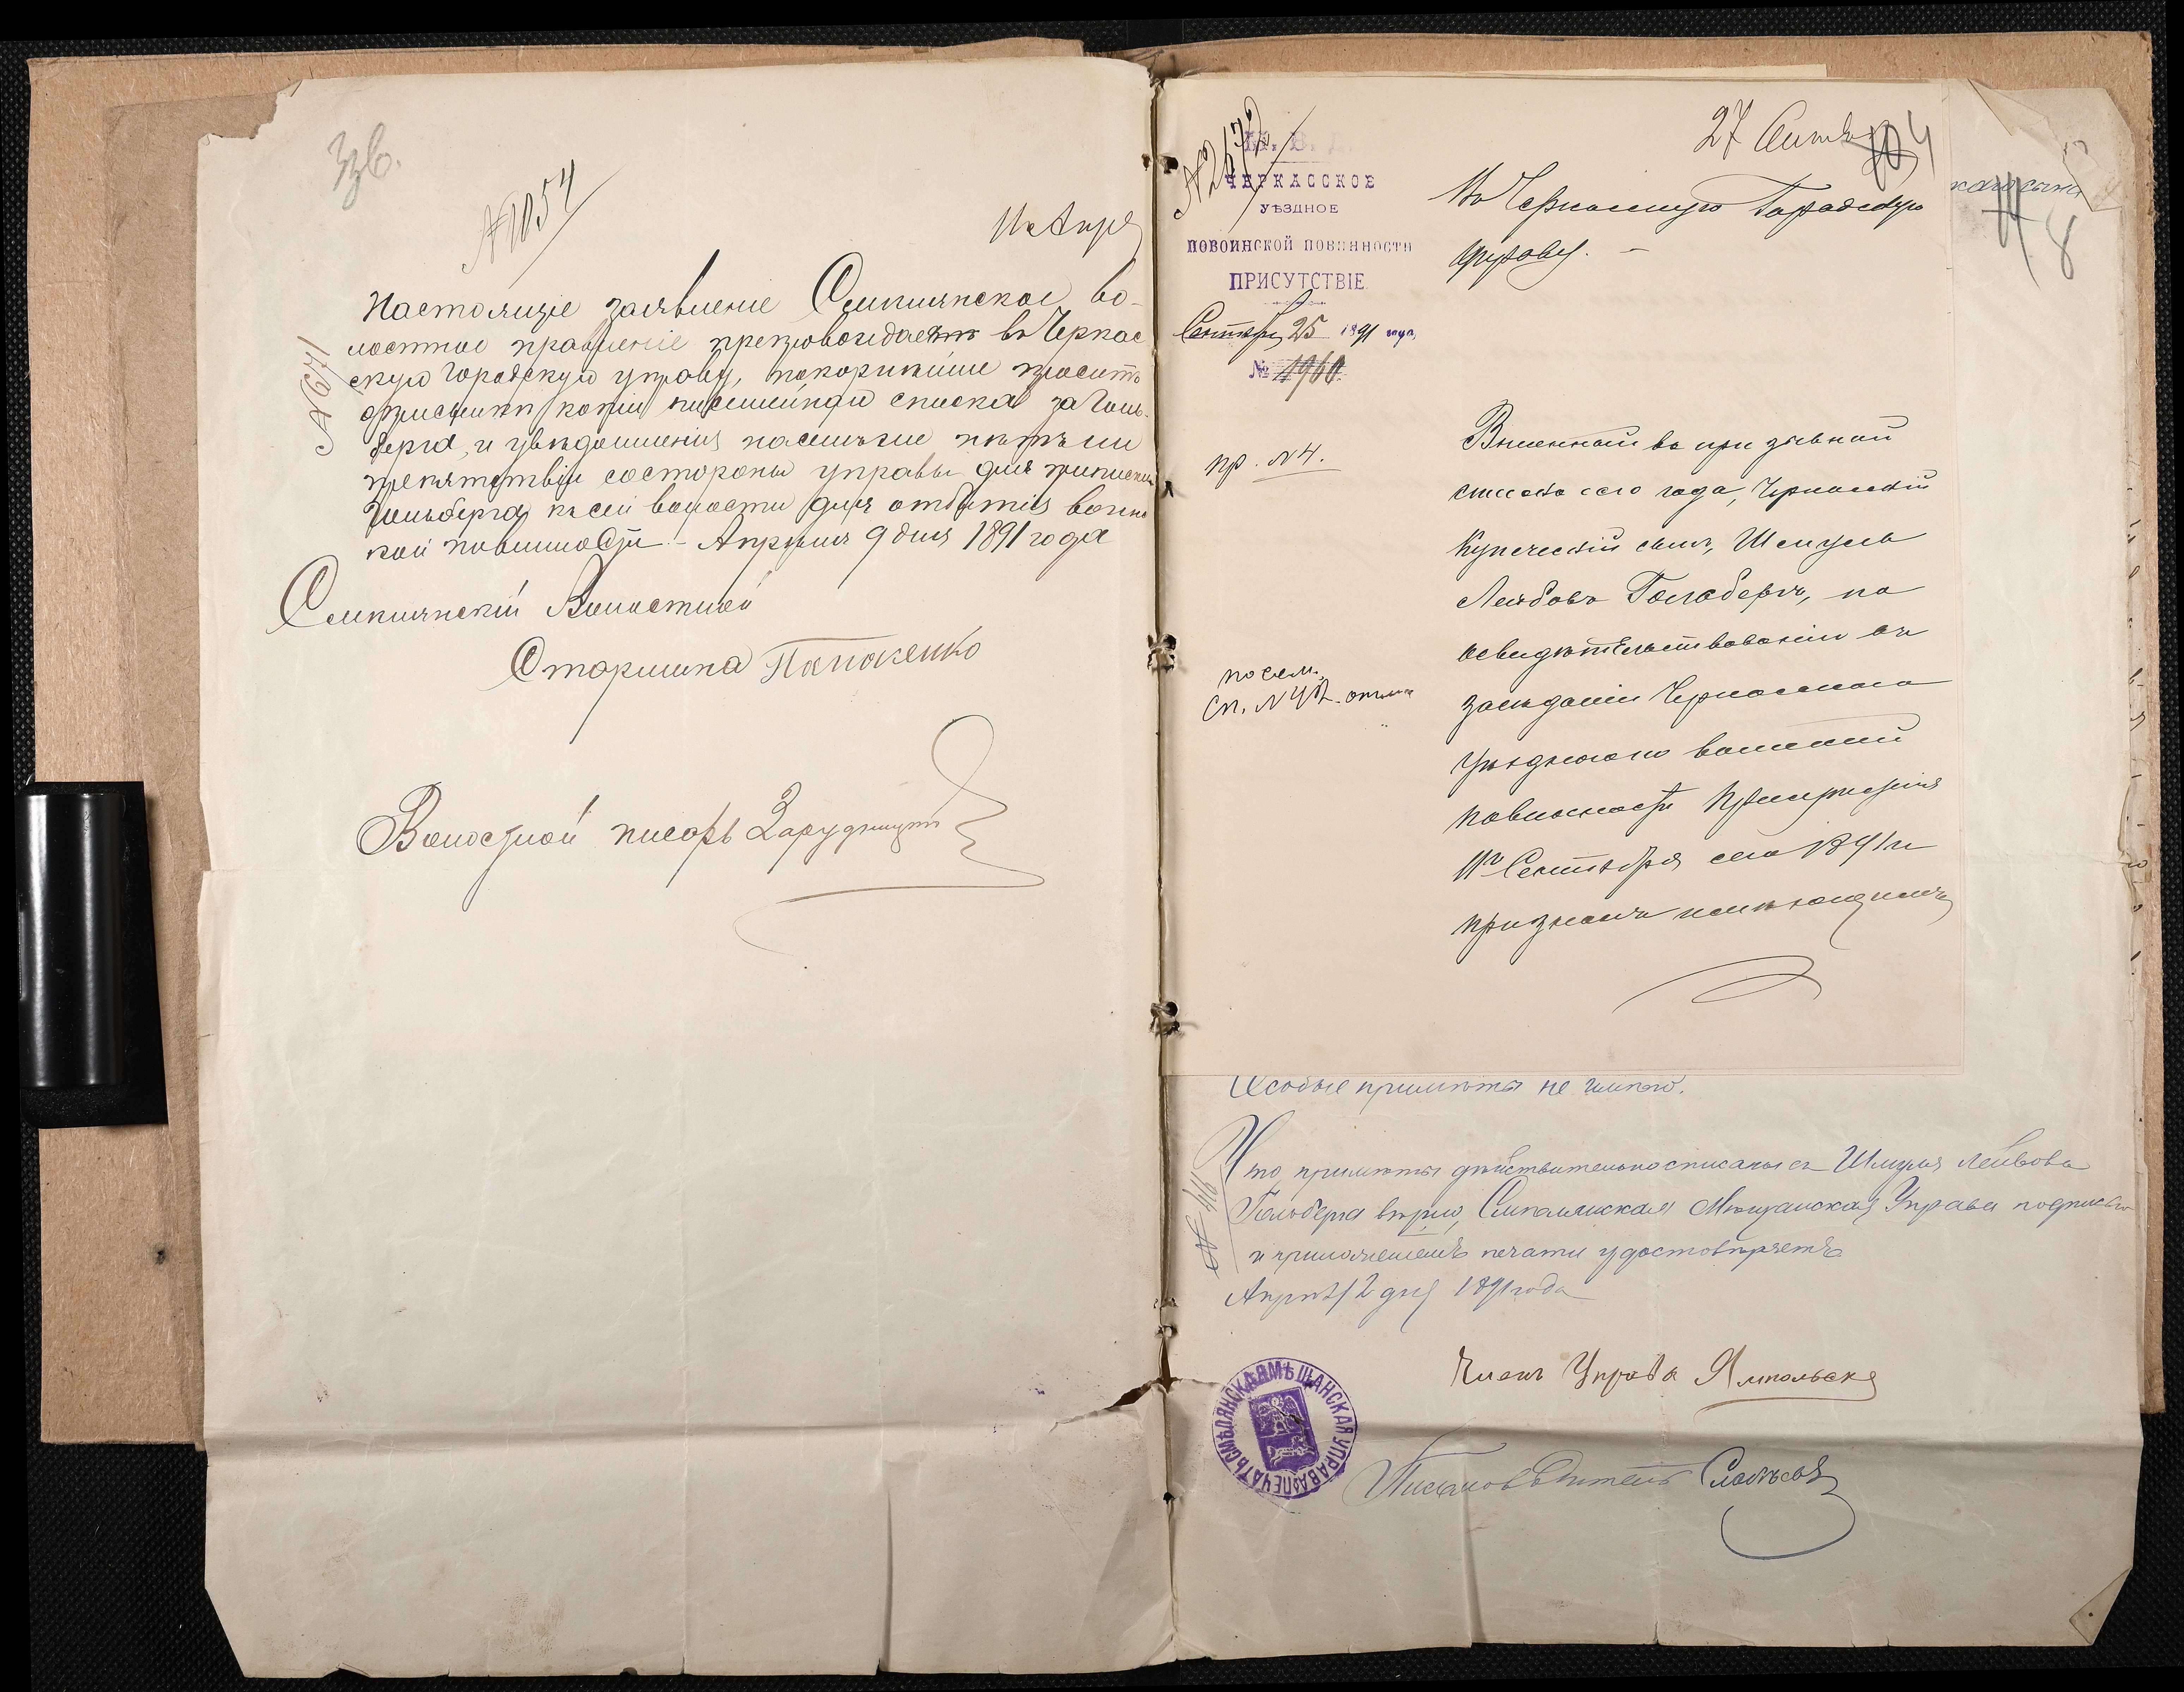 3 об.
№ 1054
11 Апр
№ 671
Настоящіе заявленіе Смилянское во-
лостное правленіе препровождаетъ въ Черкас
скую Городскую управу, покорнѣйше проситъ
копіи посемейнаго списка за Голь-
берга, и увѣдомленія поселическіе нѣтъ ли
препятствій состороны управы для приписки
Гольберга къ сей волости для отбытія воинс
кой повинности - Апрѣля 9 дня 1891 года
Смилянскій Волостной
Старшина
Волостной писарь Заруд
№ 2672
М. В. Д.
ЧЕРКАССКОЕ
УѢЗДНОЕ
ПОВОИНСКОЙ ПОВИННОСТИ
ПРИСУТСТВІЕ
Сентября 25 1891 года
№ 4960
пр. № 4.
по сем.
Сп. №
27 Сентяб
104
Въ Черкасскую Городскую
Управу. -
Внесенный въ призывной
списокъ сего года, Черкасскій
Купеческій сынъ, Шмуль
Лейбовъ Гольдбергъ, по
освидѣтельствованіи въ
засѣданіи Черкасскаго
Уѣзднаго воинской
повинности Присутствія
11го Сентября сего 1891 г.
признанъ имѣющимъ
каго сына
8
Особые примѣты не имѣю.
№ 416
Что примѣты дѣйствительно списаны съ Шмуля Лейбова
Гольберга вѣрно, Смѣлянская Мѣщанская Управа подписью
и приложеніемъ печати удостовѣряетъ
Апрѣля 2 дня 1891 года
Членъ Управы Ямпольскі
Письмоводитель
ПЕЧАТЬ СМѢЛЯНСКАЯ МѢЩАНСКАЯ УПРАВА